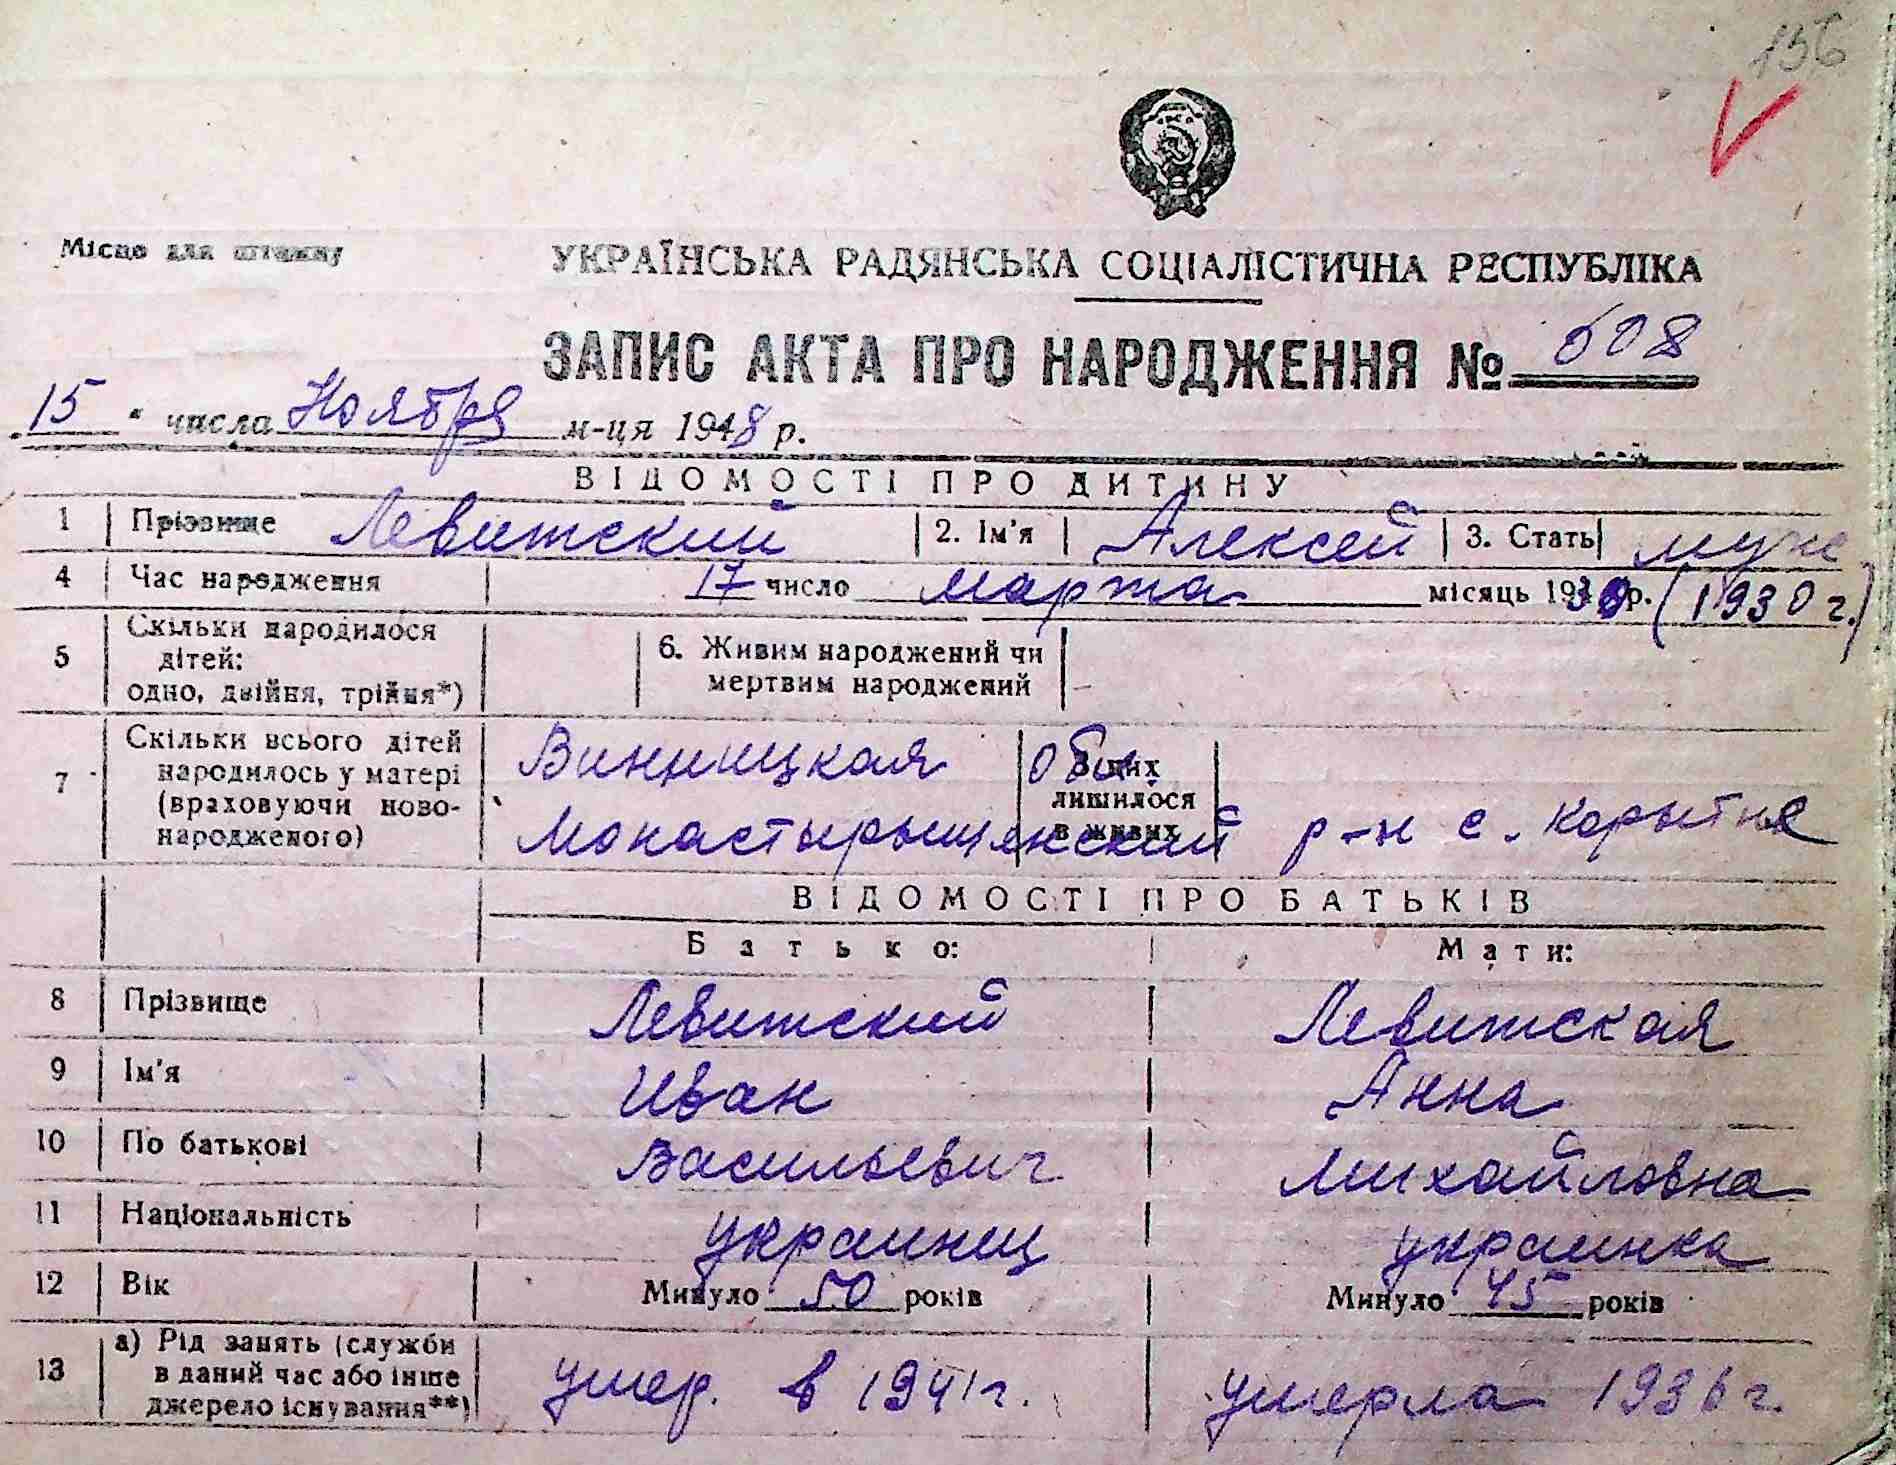 156
Місце для штампу
УКРАЇНСЬКА РАДЯНСЬКА СОЦІАЛІСТИЧНА РЕСПУБЛІКА
ЗАПИС АКТА ПРО НАРОДЖЕННЯ № 608
15 " числа Ноября м-ця 1948 р.
ВІДОМОСТІ ПРО ДИТИНУ
1 Прізвище Левитский 2. Ім'я Алексей 3. Стать муж
4 Час народження 17 число марта місяць 1930 р. (1930 г.)
5 Скільки народилося дітей: одно, двійня, трійня*) 6. Живим народжений чи мертвим народжений
7 Скільки всього дітей народилось у матері (враховуючи новонародженого) З них лишилося в живих
Винницкая обл.
Монастырищенский р-н с. Корытня
ВІДОМОСТІ ПРО БАТЬКІВ
Батько: Мати:
8 Прізвище Левитский Левитская
9 Ім'я Иван Анна
10 По батькові Васильевич Михайловна
11 Національність украинец украинка
12 Вік Минуло 50 років Минуло 45 років
13 а) Рід занять (служби в даний час або інше джерело існування**) умер. в 1941 г. умерла 1936 г.